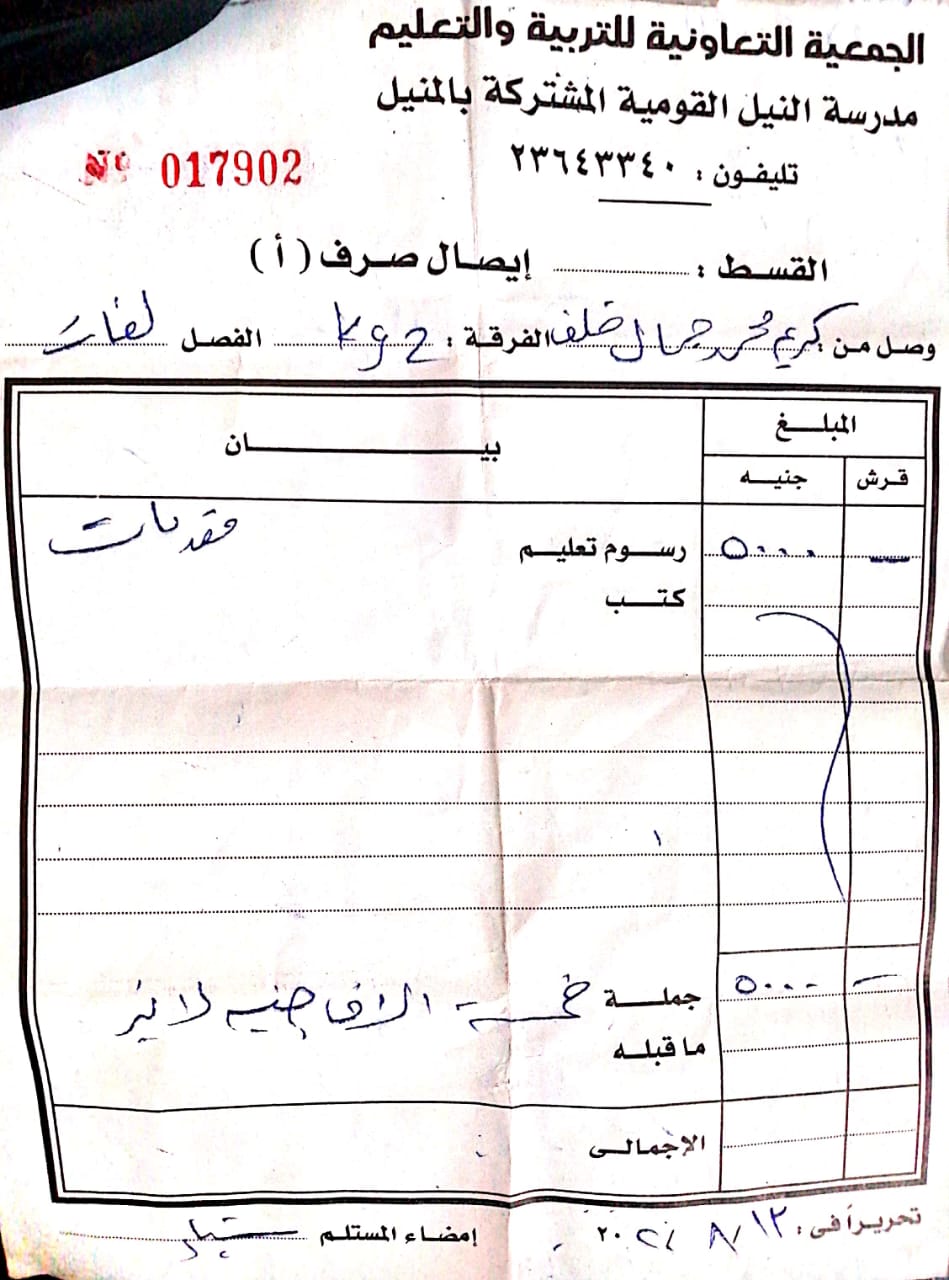 الجمعية التعاونية للتربية والتعليم
مدرسة النيل القومية المشتركة بالمنيل
تليفون : ٢٣٦٤٣٣٤٠
Nº 017902
القسط : .......... إيصال صرف ( أ )
وصل من : كريم محمد جمال خلف الفرقة : kg 2 الفصل لغات
المبلغ بيان
قرش جنيه
— ٥٠٠٠ رسوم تعليم مقدمات
كتب
— ٥٠٠٠ جملة خمسة الاف جنيه لاغير
ما قبله
الإجمالى
تحريراً فى : ١٣ / ٨ / ٢٠ إمضاء المستلم